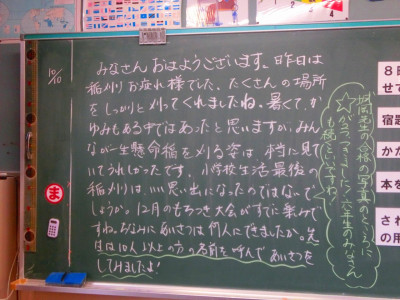 10/10
みなさん おはようございます。昨日は
稲刈りお疲れ様でした。たくさんの場所
をしっかりと刈ってくれましたね。暑くて、か
ゆみもある中ではあったと思いますが、みん
なが一生懸命稲を刈る姿は、本当に見て
いてうれしかったです。小学校生活最後の
稲刈りは、いい思い出になったのではないで
しょうか。12月のもちつき大会がすでに楽しみで
すね。ちなみにあいさつは何人にできましたか。先
生は10人以上の方の名前を呼んであいさつを
してみましたよ！
の合格の写真のところに
☆がつきました！六年生のみなさん
も
ま
8
せて
宿題
かた
本を
され
の用